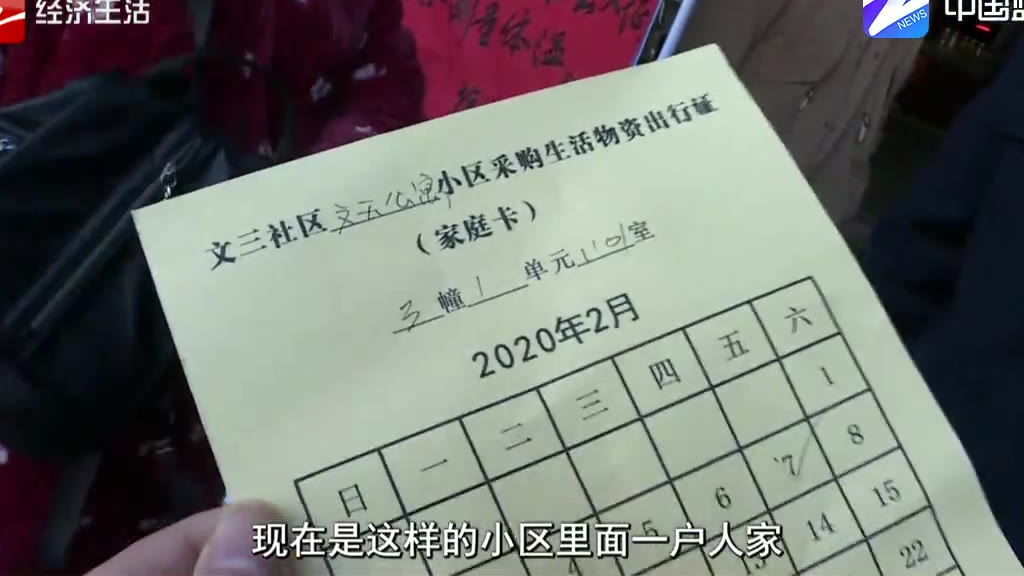 经济生活
NEWS
中国蓝
测量体温
文三社区文天公寓小区采购生活物资出行证
（家庭卡）
3幢1单元1101室
2020年2月
日 一 二 三 四 五 六
1
5 6 7 8
4 13 14 15
22
现在是这样的小区里面一户人家